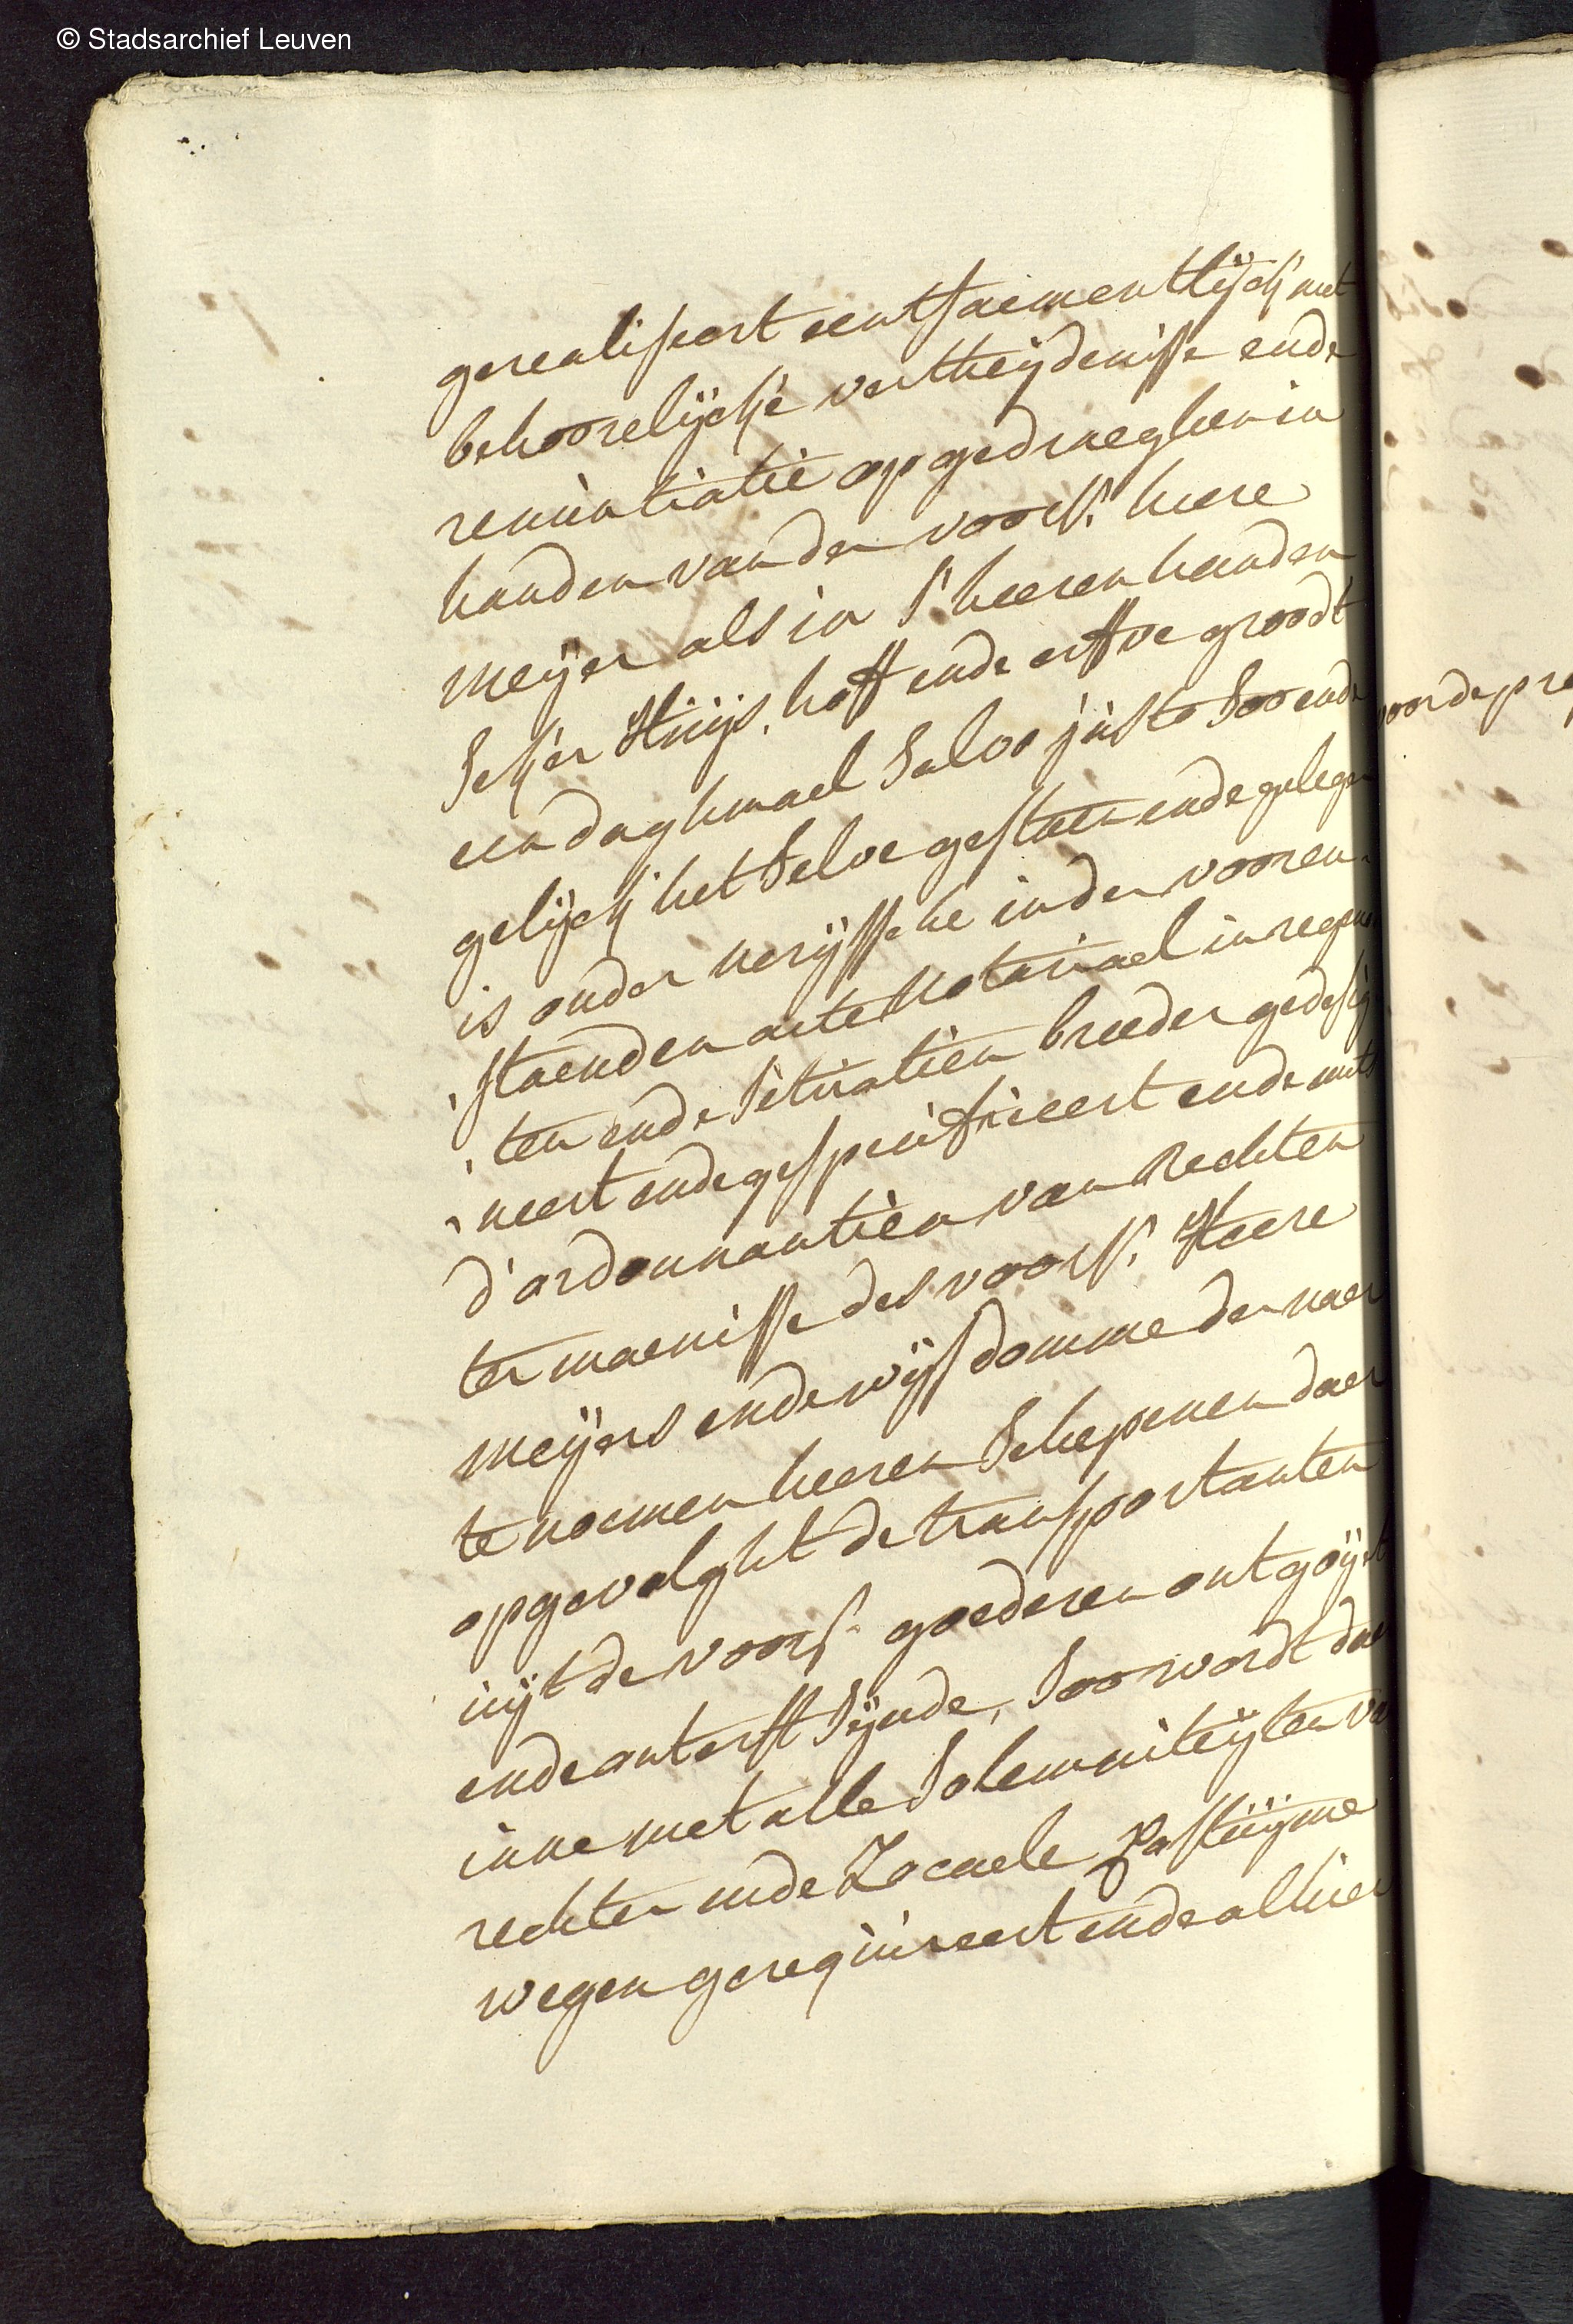 © Stadsarchief Leuven
gerealiseert eentsaementlijck met
behoorelijcke vertheijdenisse ende
renuntiatie opgedraeghen in
handen van den voors. heere
meijer als in s'heeren handen
seker Huijs, hoff ende erffve groodt
een daghmael salvo justo soo ende
gelijck het selve gestaen ende gelegen
is onder nerijssche in den vooren-
staenden acte Notariael in regenoo
ten ende situatien breeder gedesig
neert ende gespecificeert ende mits
d'ordonnantien van Rechten
ter maenisse des voors. Heere
meijers ende wijsdomme der naer
te noemen heeren Schepenen daer
opgevolght de transportanten
uijt de voors. goederen ontgoijt
ende onterft sijnde, soo wordt daer
inne met alle solemniteijten van
rechten ende Locaele Costuijme
wegen gerequireert ende alhier
voor de pre